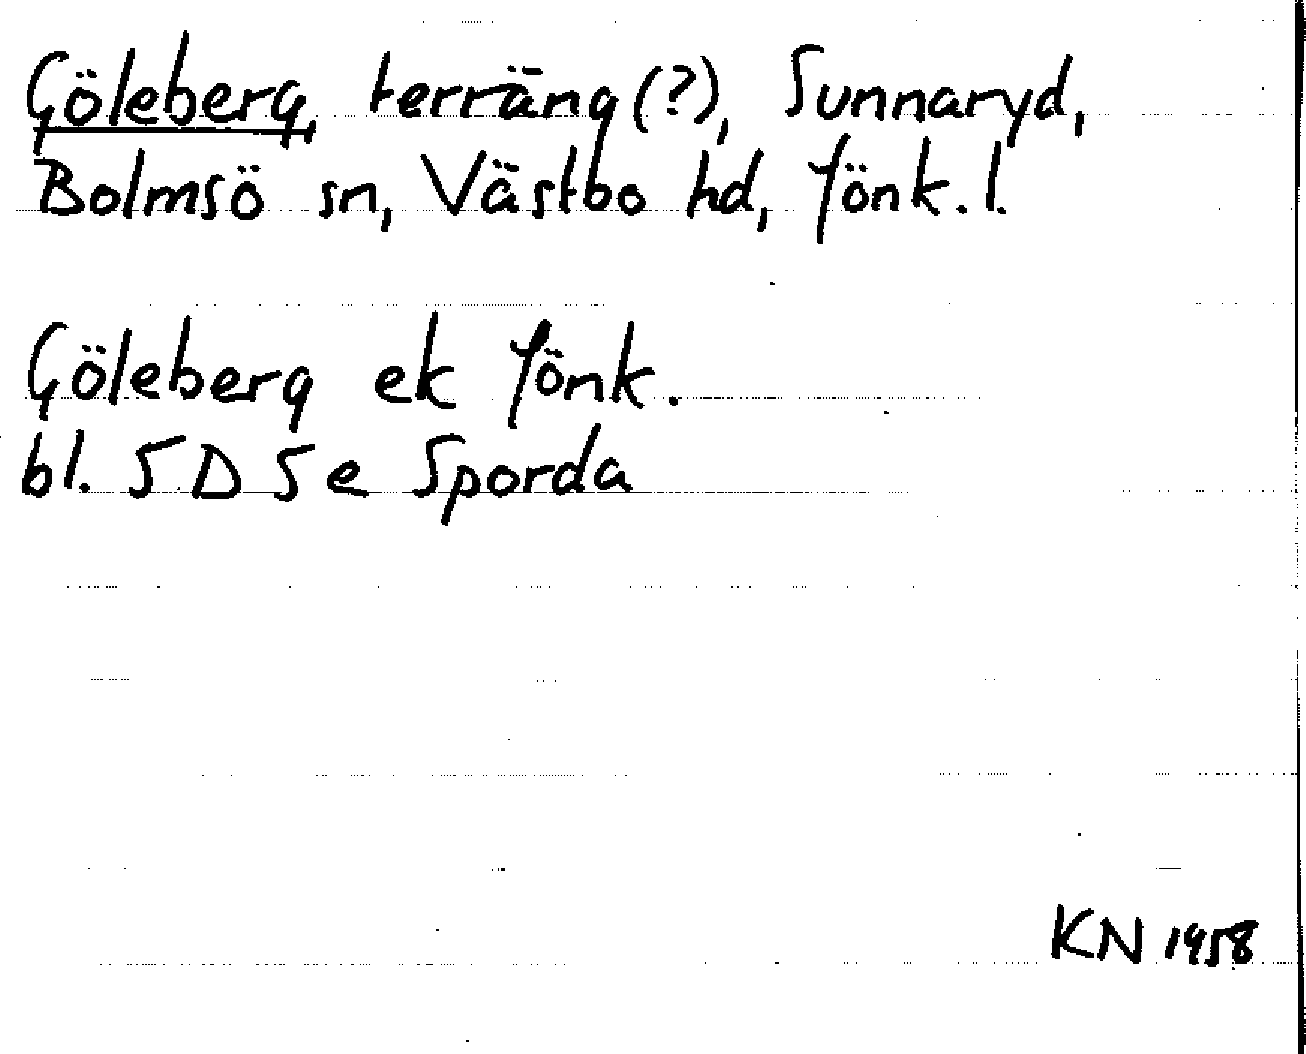 Göleberg, terräng(?), Sunnaryd,
Bolmsö sn, Västbo hd, Jönk. l.
Göleberg ek Jönk.
bl. 5D5e Sporda
KN 1958